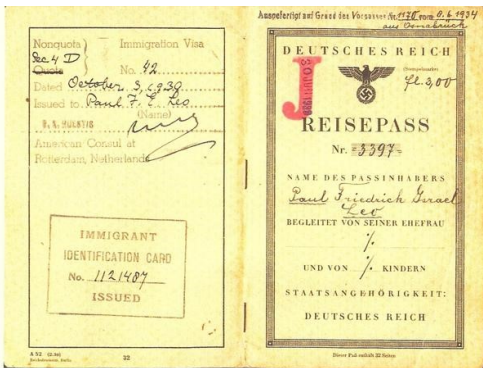 Nonquota
Sec 4 D
Quota
Immigration Visa
No. 42
Dated October 3, 1939
Issued to Paul F. I. Leo
(Name)
American Consul at
Rotterdam, Netherlands
IMMIGRANT
IDENTIFICATION CARD
No. 1121487
ISSUED
32
Ausgefertigt auf Grund des Vorpasses Nr. 1170 vom 0.6.1934
aus Osnabrück
DEUTSCHES REICH
fl. 3,00
J
REISEPASS
Nr. 3397
NAME DES PASSINHABERS
Paul Friedrich Israel
Leo
BEGLEITET VON SEINER EHEFRAU
%
UND VON % KINDERN
STAATSANGEHÖRIGKEIT:
DEUTSCHES REICH
Dieser Paß enthält 32 Seiten